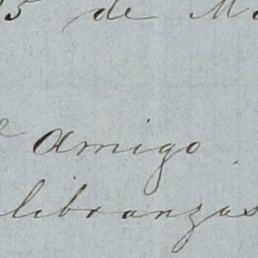 5 de
Amigo
libranzas